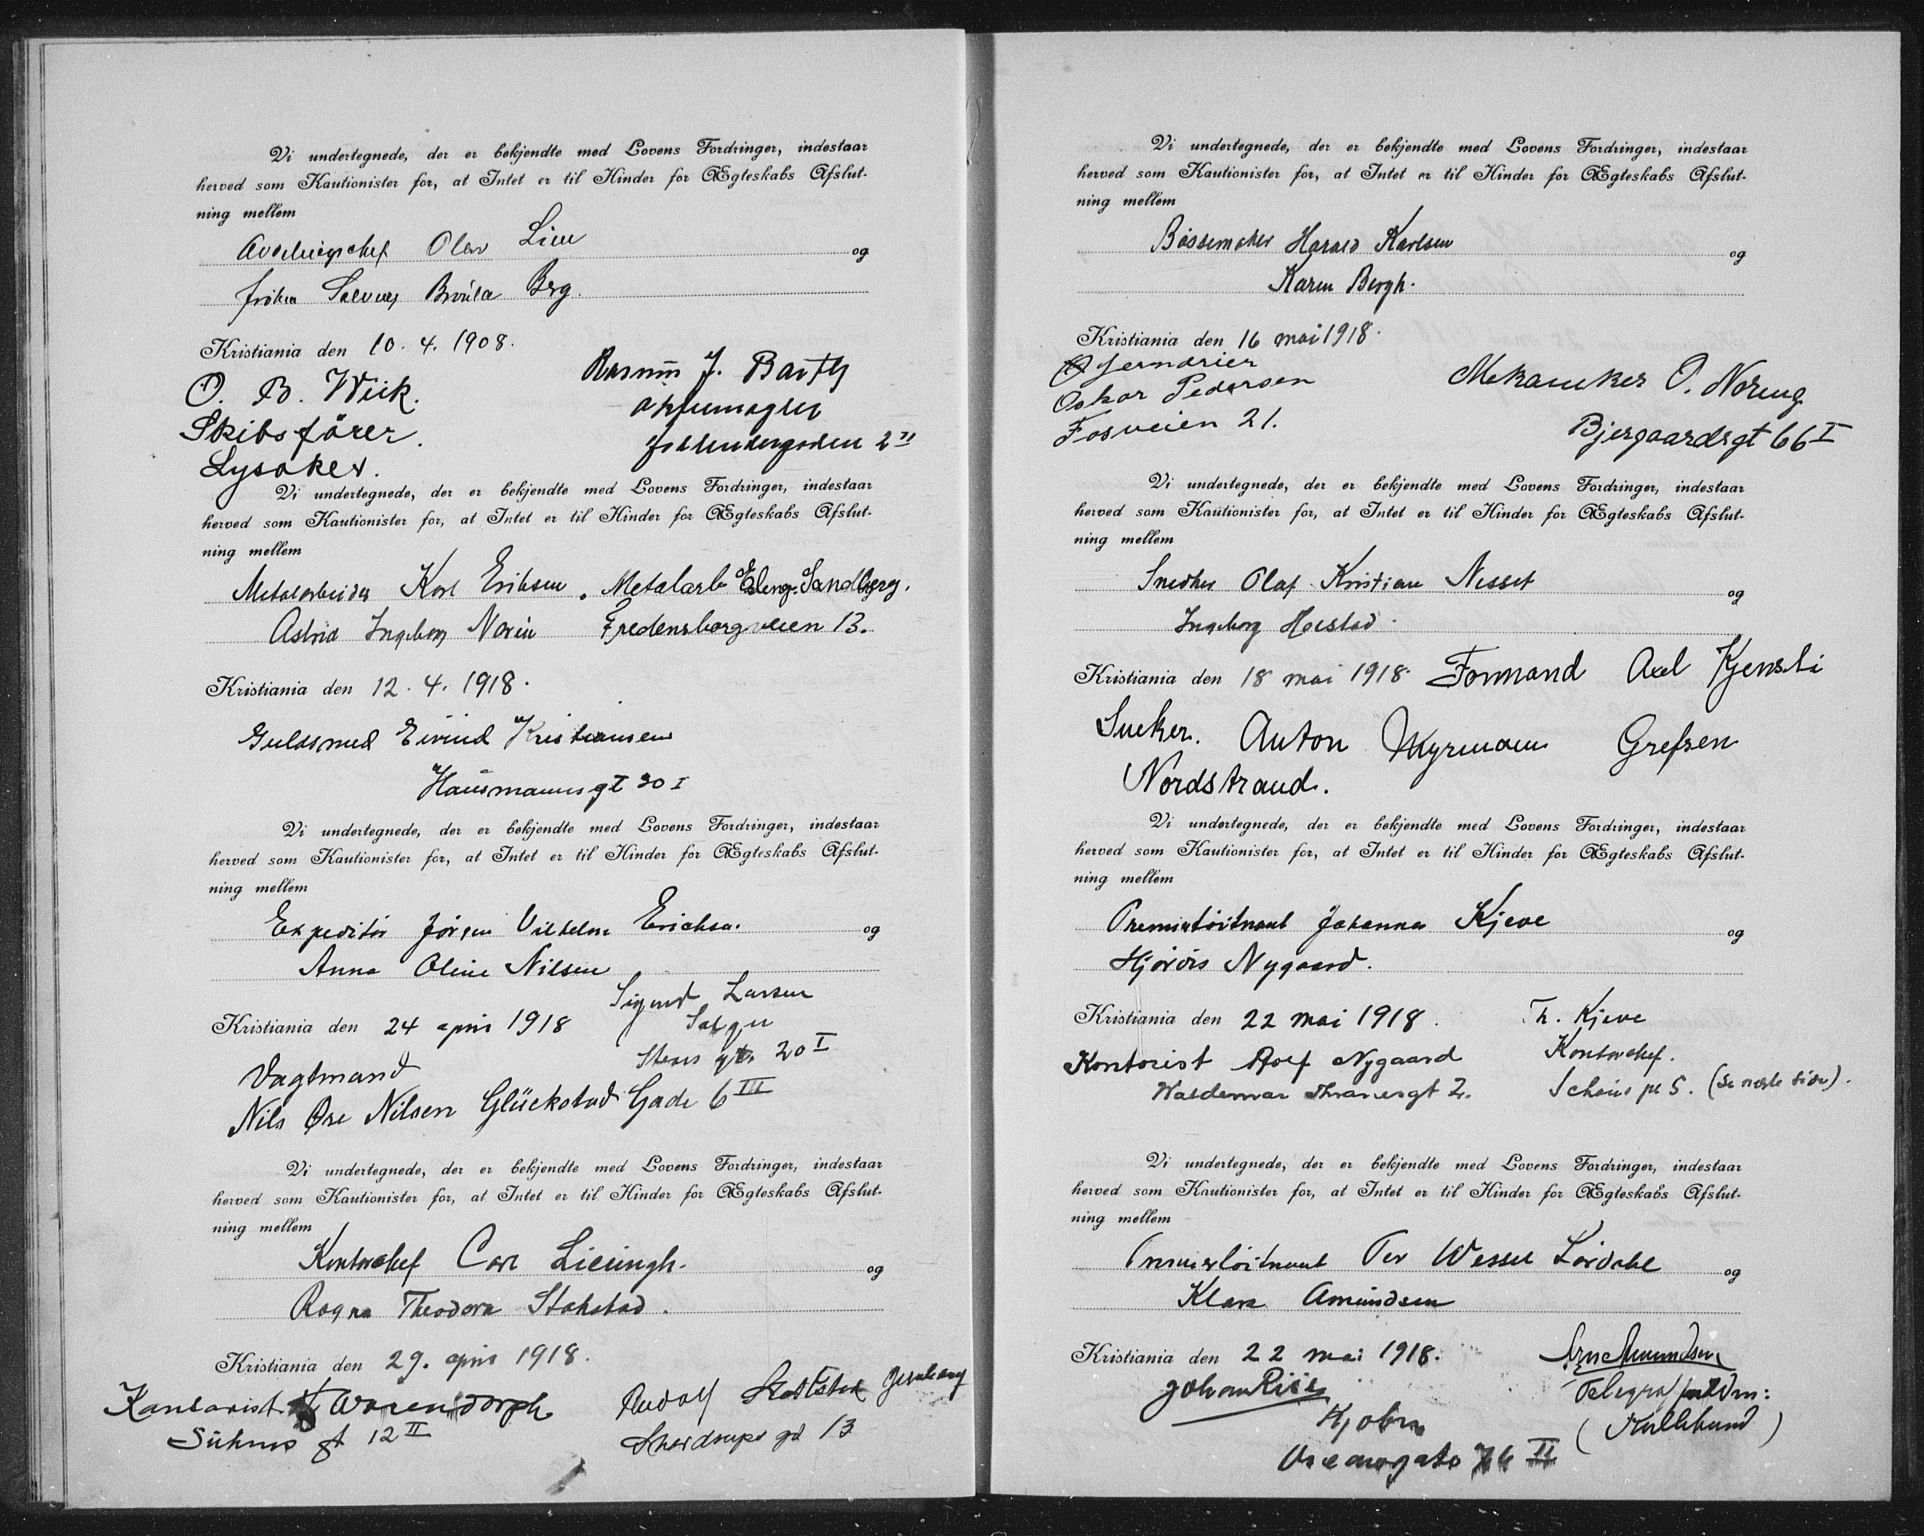 Vi undertegnede, der er bekjendte med Lovens Fordringer, indestaar
herved som Kautionister for, at Intet er til Hinder for Ægteskabs Afslut-
ning mellem
Avdelingschef Olav Lien og
frøken Berg.
Kristiania den 10. 4. 1908.
O. B. Wiik.
Skibsfører.
Lysaker.
Rasmus J. Barth
2 II
Vi undertegnede, der er bekjendte med Lovens Fordringer, indestaar
herved som Kautionister for, at Intet er til Hinder for Ægteskabs Afslut-
ning mellem
Metalarbeider Karl Eriksen. Metalarb Sandberg.
Astrid Ingeborg Norin Fredensborgveien 13.
Kristiania den 12. 4. 1918.
Guldsmed Eivind Kristiansen
Hausmannsgt 30 I
Vi undertegnede, der er bekjendte med Lovens Fordringer, indestaar
herved som Kautionister for, at Intet er til Hinder for Ægteskabs Afslut-
ning mellem
Expeditør Jørgen Vilhelm Erichsen. og
Anna Oline Nilsen
Kristiania den 24 april 1918
Sigurd Larsen
Stens gt. 20 I
Vagtmand
Nils Øre Nilsen Glückstad Gade 6 III
Vi undertegnede, der er bekjendte med Lovens Fordringer, indestaar
herved som Kautionister for, at Intet er til Hinder for Ægteskabs Afslut-
ning mellem
Kontorchef Carl Lieungh. og
Ragna Theodora Stokstad.
Kristiania den 29. april 1918.
Kontorist Warendorph
Suhms gt 12 II
Rudolf
Sverdrups gt 13
Vi undertegnede, der er bekjendte med Lovens Fordringer, indestaar
herved som Kautionister for, at Intet er til Hinder for Ægteskabs Afslut-
ning mellem
Bøssemaker Harald Karlsen og
Karen Bergh.
Kristiania den 16 mai 1918.
Jerndrier
Oskar Pedersen
Fosveien 21.
Mekaniker O. Noreng
Bjergaardsgt 66 I
Vi undertegnede, der er bekjendte med Lovens Fordringer, indestaar
herved som Kautionister for, at Intet er til Hinder for Ægteskabs Afslut-
ning mellem
Snedker Olaf Kristian Nesset og
Ingeborg Hoestad.
Kristiania den 18 mai 1918. Formand Axel Kjensli
Sneker. Anton Myrmoen Grefsen
Nordstrand.
Vi undertegnede, der er bekjendte med Lovens Fordringer, indestaar
herved som Kautionister for, at Intet er til Hinder for Ægteskabs Afslut-
ning mellem
Premierløitnant Johannes Kjeve og
Hjørdis Nygaard.
Kristiania den 22 mai 1918.
Th. Kjeve
Kontorchef.
Scheius pl 5. (se neste side).
Kontorist Rolf Nygaard
Waldemar Thranesgt 2.
Vi undertegnede, der er bekjendte med Lovens Fordringer, indestaar
herved som Kautionister for, at Intet er til Hinder for Ægteskabs Afslut-
ning mellem
Premierløitnant Per Wessel Lørdahl og
Klara Amundsen
Kristiania den 22 mai 1918.
Johan Riis
Kjøbm
Arne Amundsen
(Kullebund)